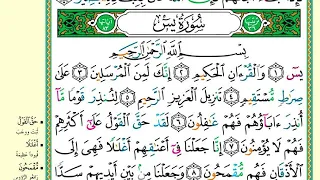 سُورَةُ يسٓ
بِسْمِ ٱللَّهِ ٱلرَّحْمَٰنِ ٱلرَّحِيمِ
يسٓ ١ وَٱلْقُرْءَانِ ٱلْحَكِيمِ ٢ إِنَّكَ لَمِنَ ٱلْمُرْسَلِينَ ٣ عَلَىٰ
صِرَٰطٍ مُّسْتَقِيمٍ ٤ تَنزِيلَ ٱلْعَزِيزِ ٱلرَّحِيمِ ٥ لِتُنذِرَ قَوْمًا مَّآ
أُنذِرَ ءَابَآؤُهُمْ فَهُمْ غَٰفِلُونَ ٦ لَقَدْ حَقَّ ٱلْقَوْلُ عَلَىٰٓ أَكْثَرِهِمْ
فَهُمْ لَا يُؤْمِنُونَ ٧ إِنَّا جَعَلْنَا فِىٓ أَعْنَٰقِهِمْ أَغْلَٰلًا فَهِىَ إِلَى
ٱلْأَذْقَانِ فَهُم مُّقْمَحُونَ ٨ وَجَعَلْنَا مِنۢ بَيْنِ أَيْدِيهِمْ سَدًّا
حَقَّ ٱلْقَوْلُ
ثبت ووجب
أَغْلَٰلًا
مُّقْمَحُونَ